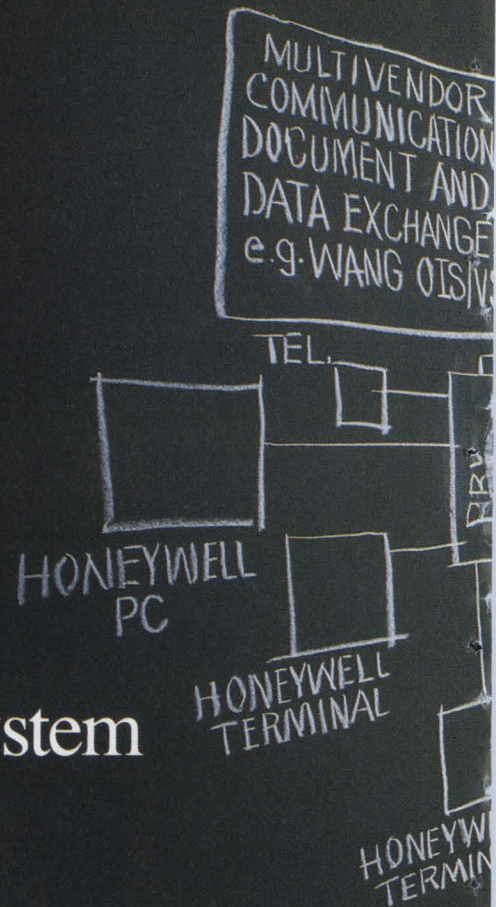 MULTIVENDOR
COMMUNICATION
DOCUMENT AND
DATA EXCHANGE
e.g. WANG OIS/V
TEL.
HONEYWELL
PC
HONEYWELL
TERMINAL
stem
HONEYW
TERMIN